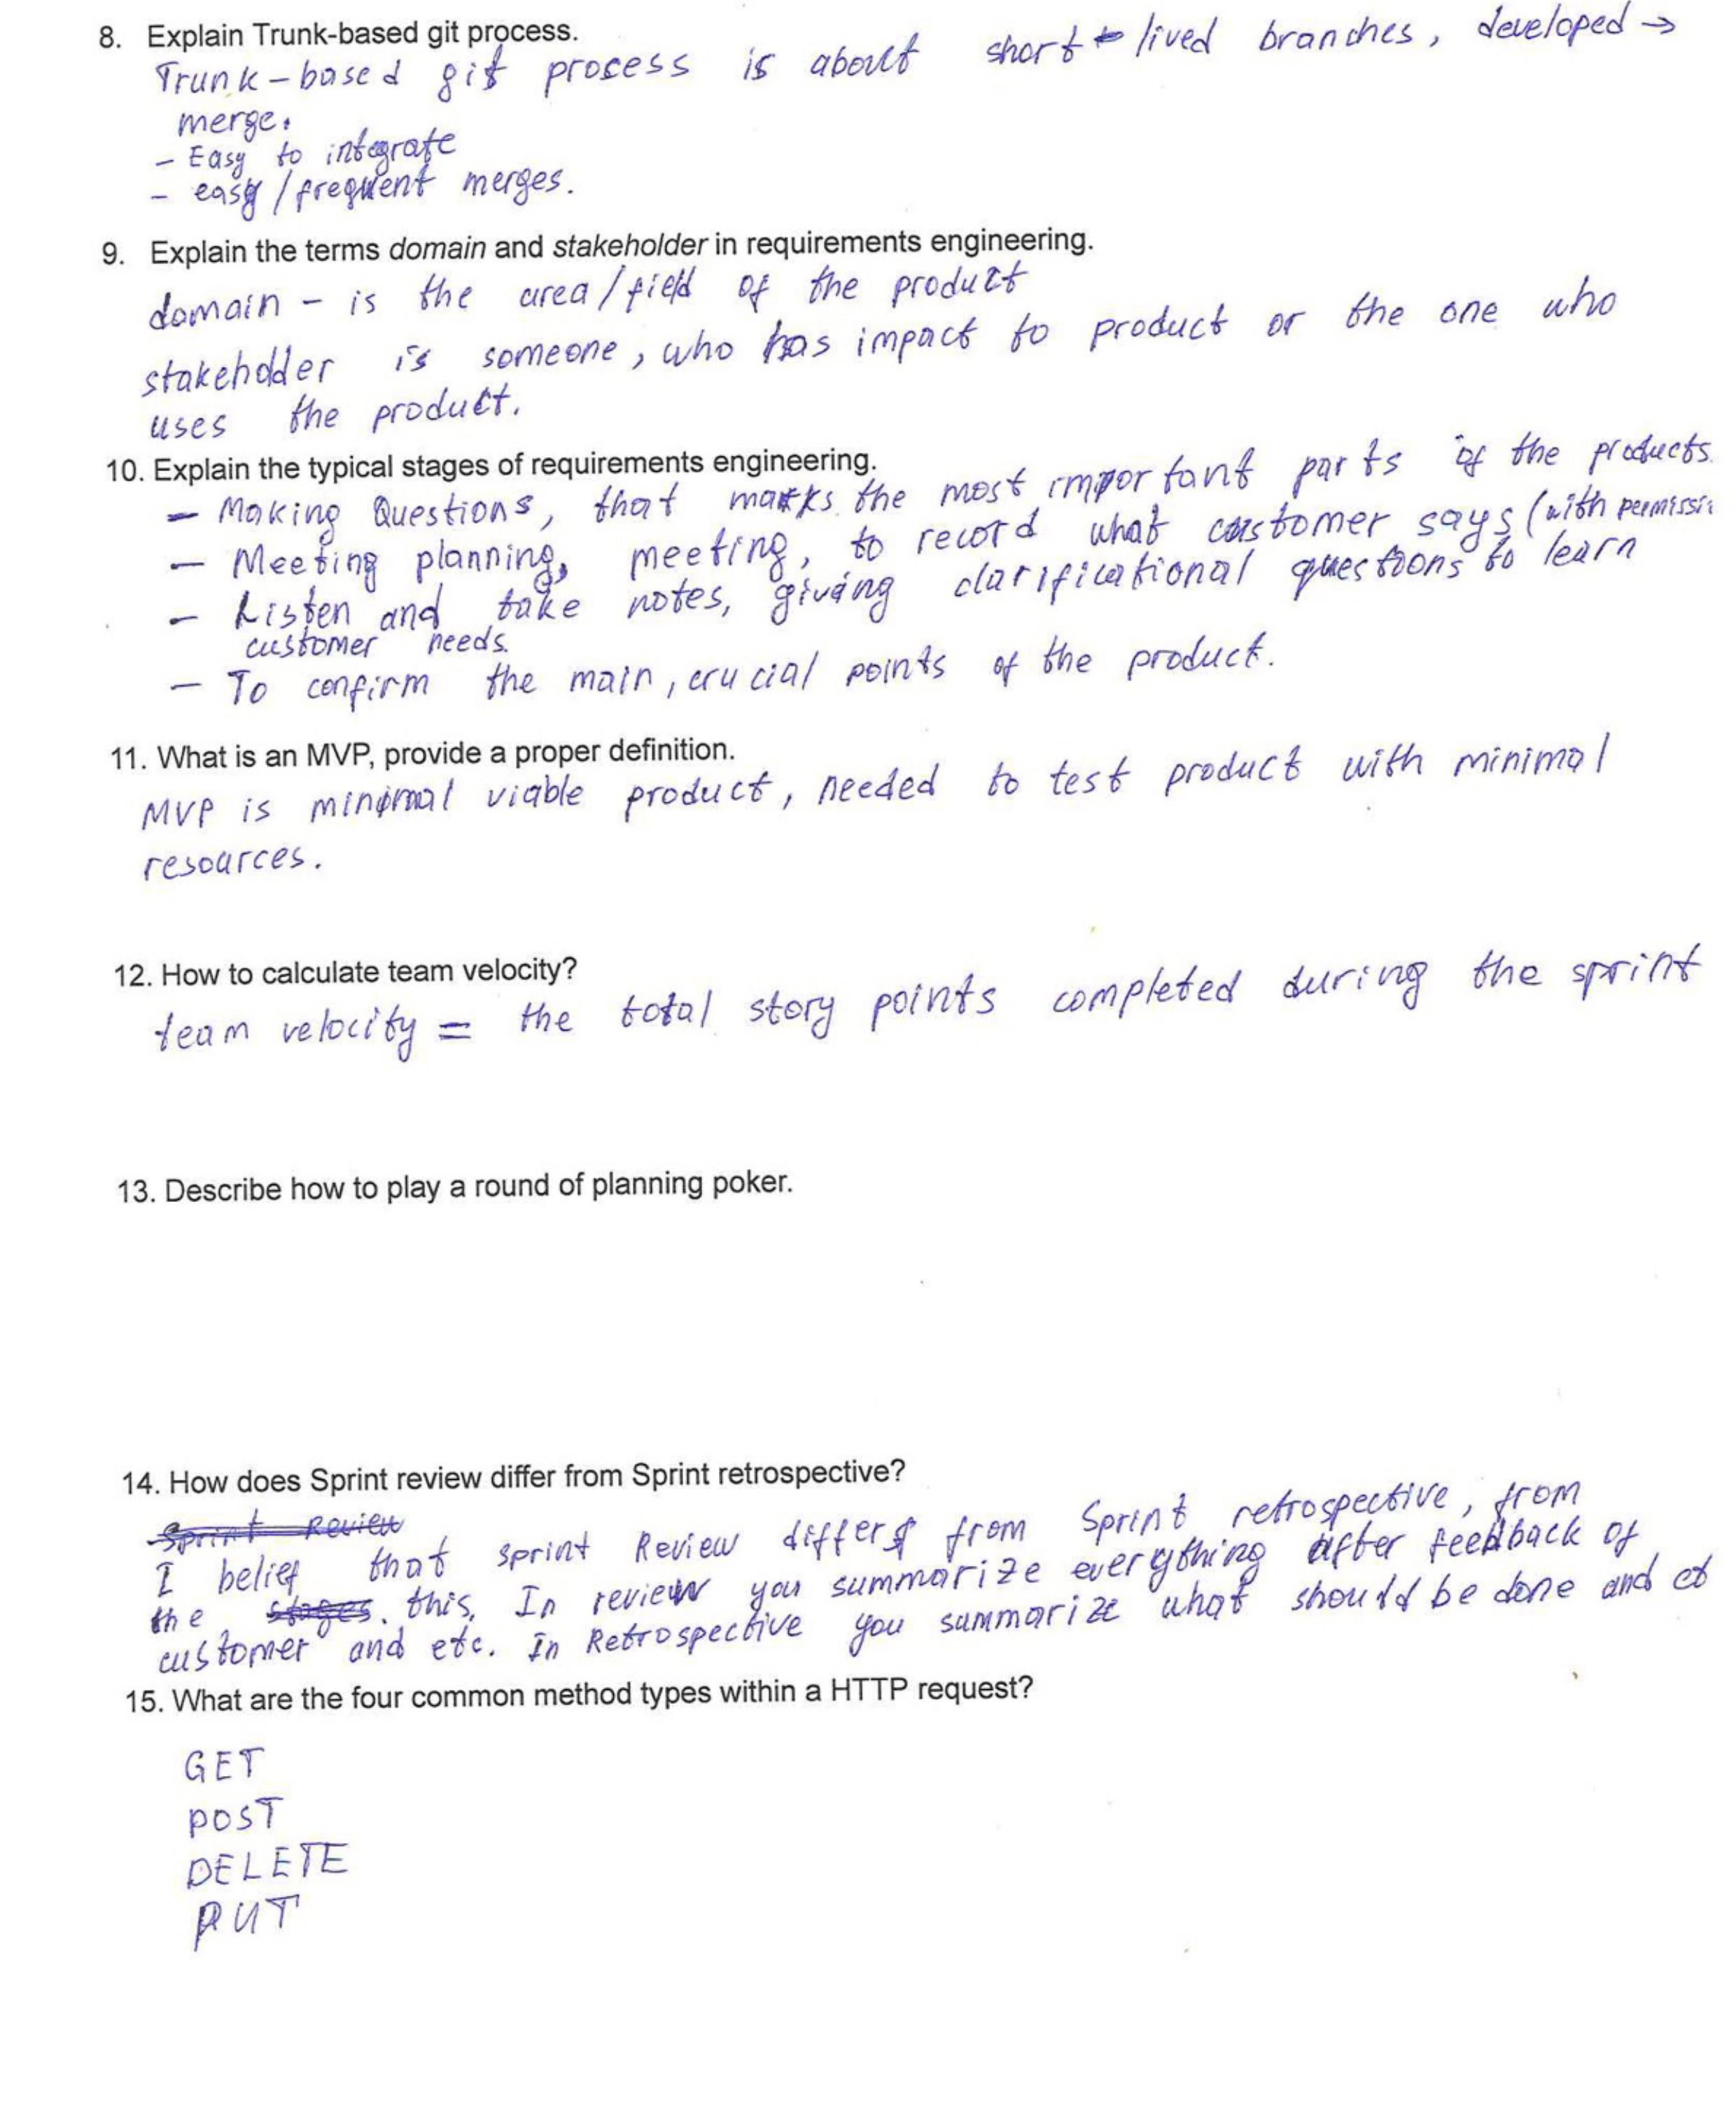 8. Explain Trunk-based git process.
Trunk-based git process is about short-lived branches, developed →
merge.
- Easy to integrate
- easy/frequent merges.
9. Explain the terms domain and stakeholder in requirements engineering.
domain - is the area/field of the product
stakeholder is someone, who has impact to product or the one who
uses the product.
10. Explain the typical stages of requirements engineering.
- Making Questions, that marks the most important parts of the products.
- Meeting planning, meeting, to record what customer says (with permissi
- Listen and take notes, giving clarificational questions to learn
customer needs.
- To confirm the main, crucial points of the product.
11. What is an MVP, provide a proper definition.
MVP is minimal viable product, needed to test product with minimal
resources.
12. How to calculate team velocity?
team velocity = the total story points completed during the sprint
13. Describe how to play a round of planning poker.
14. How does Sprint review differ from Sprint retrospective?
Sprint Review
I belief that sprint Review differs from Sprint retrospective, from
the stages. this. In review you summarize everything after feedback of
customer and etc. In Retrospective you summarize what should be done and et
15. What are the four common method types within a HTTP request?
GET
POST
DELETE
PUT